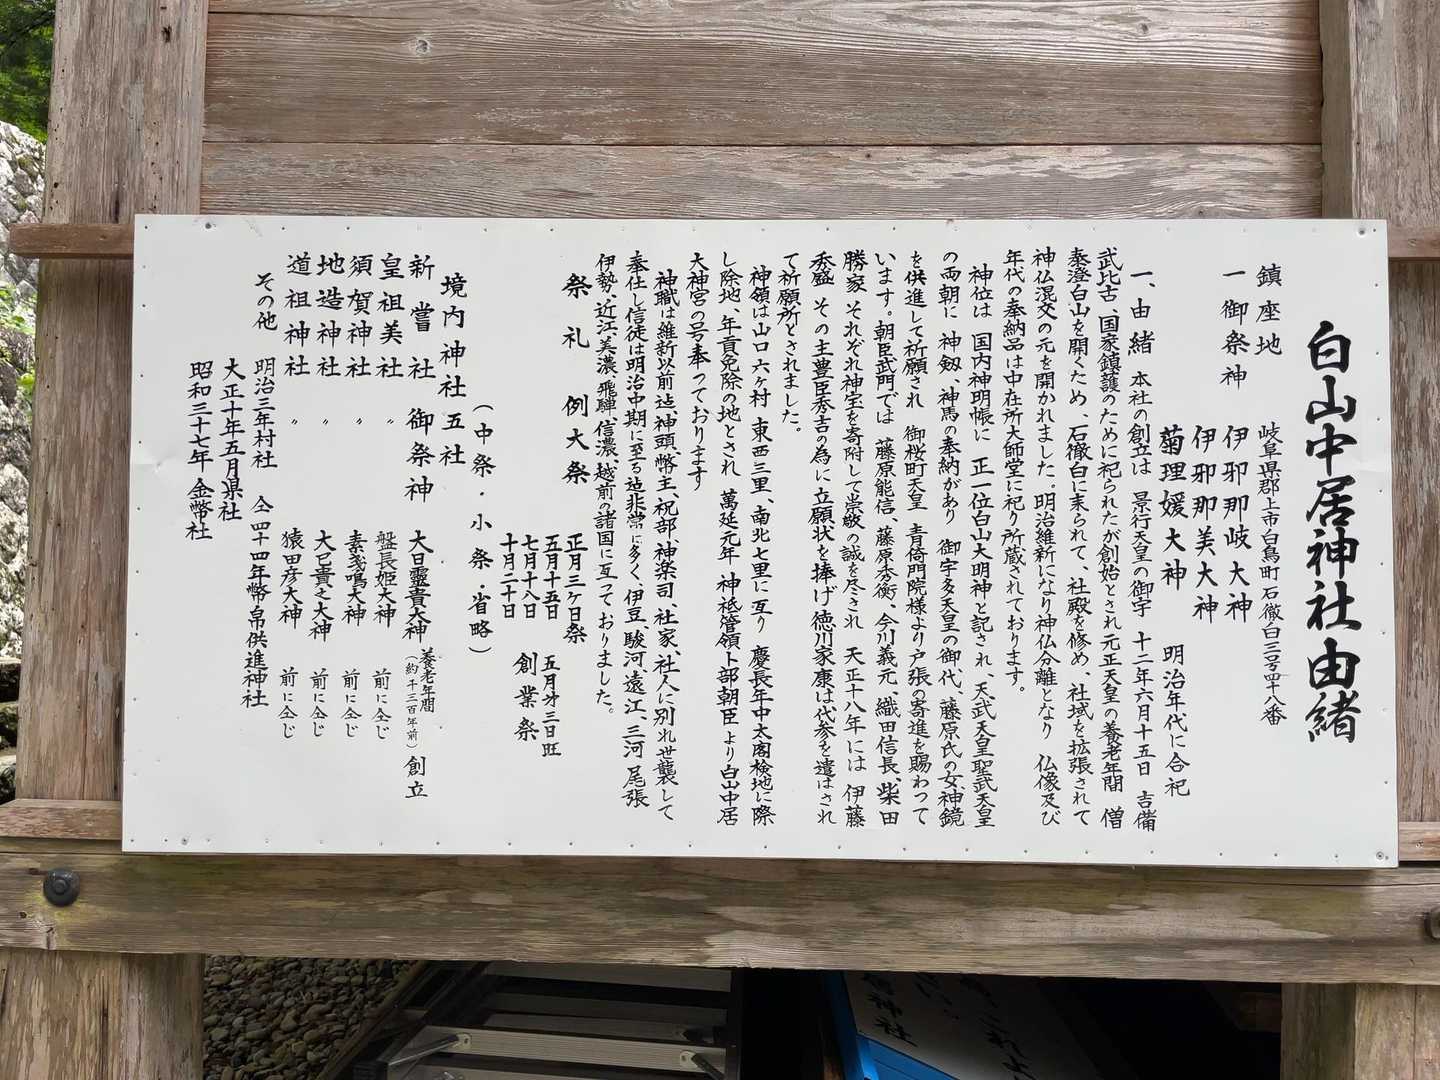 白山中居神社由緒
鎮座地　岐阜県郡上市白鳥町石徹白三号四十八番
一　御祭神　伊邪那岐大神
伊邪那美大神
菊理媛大神　明治年代に合祀
一、由緒　本社の創立は　景行天皇の御宇　十二年六月十五日　吉備
武比古、国家鎮護のために祀られたが創始とされ元正天皇の養老年間　僧
泰澄白山を開くため、石徹白に来られて、社殿を修め、社域を拡張されて
神仏混交の元を開かれました。明治維新になり神仏分離となり　仏像及び
年代の奉納品は中在所大師堂に祀り所蔵されております。
神位は　国内神明帳に　正一位白山大明神と記され、天武天皇聖武天皇
の両朝に　神劔、神馬の奉納があり　御宇多天皇の御代、藤原氏の女、神鏡
を供進して祈願され　御桜町天皇　青倚門院様より戸張の寄進を賜わって
います。朝臣武門では　藤原能信、藤原秀衡、今川義元、織田信長、柴田
勝家　それぞれ神宝を寄附して崇敬の誠を尽され　天正十八年には　伊藤
秀盛　その主豊臣秀吉の為に　立願状を捧げ　徳川家康は代参を遣はされ
て祈願所とされました。
神領は山口六ヶ村　東西三里、南北七里に亙り　慶長年中太閤検地に際
し除地、年貢免除の地とされ　萬延元年　神祇管領卜部朝臣より白山中居
大神宮の号奉っております
神職は維新以前迠、神頭、幣主、祝部、神楽司、社家、社人に別れ世襲して
奉仕し信徒は明治中期に至る迠非常に多く、伊豆、駿河、遠江、三河　尾張
伊勢、近江、美濃、飛騨、信濃、越前の諸国に亙っておりました。
祭礼　例大祭　正月三ヶ日祭
五月十五日　五月才三日旺
七月十八日　創業祭
十月二十日
（中祭・小祭・省略）
境内神社五社
新嘗社　御祭神　大日孁貴大神　養老年間（約千三百年前）創立
皇祖美社　〃　盤長姫大神　前に仝じ
須賀神社　〃　素戔嗚大神　前に仝じ
地造神社　〃　大己貴之大神　前に仝じ
道祖神社　〃　猿田彦大神　前に仝じ
その他　明治三年村社　仝四十四年幣帛供進神社
大正十年五月県社
昭和三十七年金幣社
神社